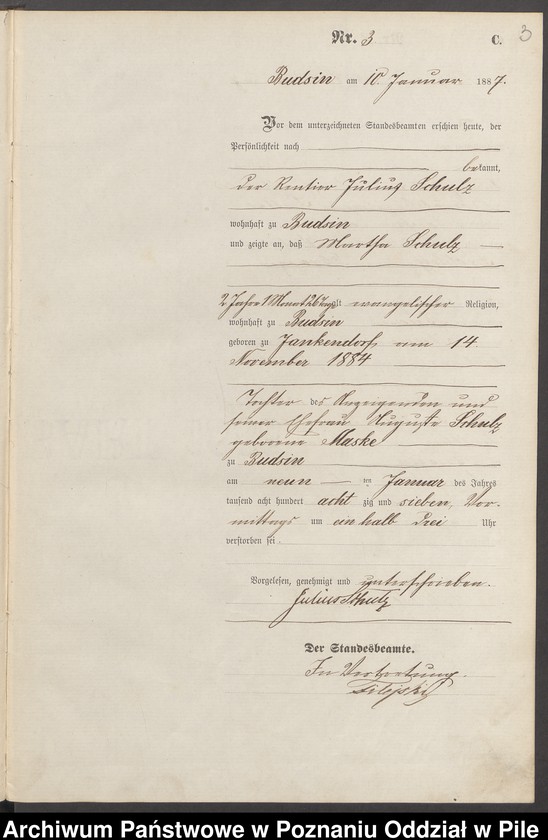 3
Nr. 3 C.
Budsin am 10. Januar 1887.
Vor dem unterzeichneten Standesbeamten erschien heute, der
Persönlichkeit nach
bekannt,
der Rentier Julius Schulz
wohnhaft zu Budsin
und zeigte an, daß Martha Schulz
2 Jahre 1 Monat 26 Tage alt evangelischer Religion,
wohnhaft zu Budsin
geboren zu Jankendorf am 14
November 1884
Tochter des Anzeigenden und
seiner Ehefrau Auguste Schulz
geborene Maske
zu Budsin
am neun ten Januar des Jahres
tausend acht hundert acht zig und sieben, Vor-
mittags um ein halb drei Uhr
verstorben sei.
Vorgelesen, genehmigt und unterschrieben.
Julius Schulz
Der Standesbeamte.
In Vertretung.
Archiwum Państwowe w Poznaniu Oddział w Pile